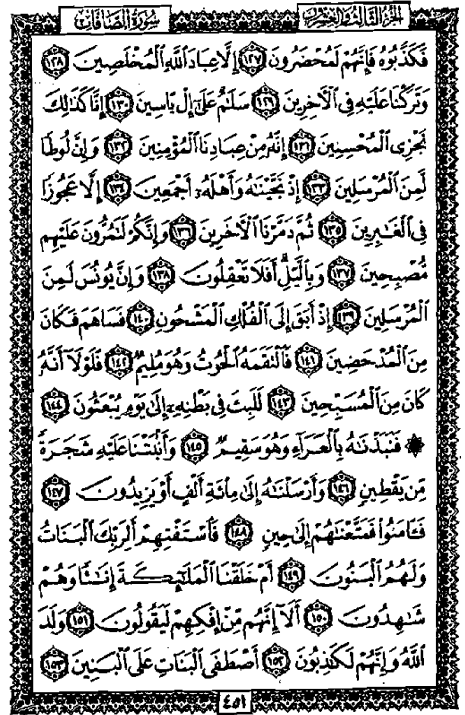 الجزء الثالث والعشرون
سورة الصافات
فَكَذَّبُوهُ فَإِنَّهُمْ لَمُحْضَرُونَ ١٢٧ إِلَّا عِبَادَ اللَّهِ الْمُخْلَصِينَ ١٢٨
وَتَرَكْنَا عَلَيْهِ فِي الْآخِرِينَ ١٢٩ سَلَامٌ عَلَىٰ إِلْ يَاسِينَ ١٣٠ إِنَّا كَذَٰلِكَ
نَجْزِي الْمُحْسِنِينَ ١٣١ إِنَّهُ مِنْ عِبَادِنَا الْمُؤْمِنِينَ ١٣٢ وَإِنَّ لُوطًا
لَمِنَ الْمُرْسَلِينَ ١٣٣ إِذْ نَجَّيْنَاهُ وَأَهْلَهُ أَجْمَعِينَ ١٣٤ إِلَّا عَجُوزًا
فِي الْغَابِرِينَ ١٣٥ ثُمَّ دَمَّرْنَا الْآخَرِينَ ١٣٦ وَإِنَّكُمْ لَتَمُرُّونَ عَلَيْهِم
مُّصْبِحِينَ ١٣٧ وَبِاللَّيْلِ أَفَلَا تَعْقِلُونَ ١٣٨ وَإِنَّ يُونُسَ لَمِنَ
الْمُرْسَلِينَ ١٣٩ إِذْ أَبَقَ إِلَى الْفُلْكِ الْمَشْحُونِ ١٤٠ فَسَاهَمَ فَكَانَ
مِنَ الْمُدْحَضِينَ ١٤١ فَالْتَقَمَهُ الْحُوتُ وَهُوَ مُلِيمٌ ١٤٢ فَلَوْلَا أَنَّهُ
كَانَ مِنَ الْمُسَبِّحِينَ ١٤٣ لَلَبِثَ فِي بَطْنِهِ إِلَىٰ يَوْمِ يُبْعَثُونَ ١٤٤
۞ فَنَبَذْنَاهُ بِالْعَرَاءِ وَهُوَ سَقِيمٌ ١٤٥ وَأَنبَتْنَا عَلَيْهِ شَجَرَةً
مِّن يَقْطِينٍ ١٤٦ وَأَرْسَلْنَاهُ إِلَىٰ مِائَةِ أَلْفٍ أَوْ يَزِيدُونَ ١٤٧
فَآمَنُوا فَمَتَّعْنَاهُمْ إِلَىٰ حِينٍ ١٤٨ فَاسْتَفْتِهِمْ أَلِرَبِّكَ الْبَنَاتُ
وَلَهُمُ الْبَنُونَ ١٤٩ أَمْ خَلَقْنَا الْمَلَائِكَةَ إِنَاثًا وَهُمْ
شَاهِدُونَ ١٥٠ أَلَا إِنَّهُم مِّنْ إِفْكِهِمْ لَيَقُولُونَ ١٥١ وَلَدَ
اللَّهُ وَإِنَّهُمْ لَكَاذِبُونَ ١٥٢ أَصْطَفَى الْبَنَاتِ عَلَى الْبَنِينَ ١٥٣
٤٥١